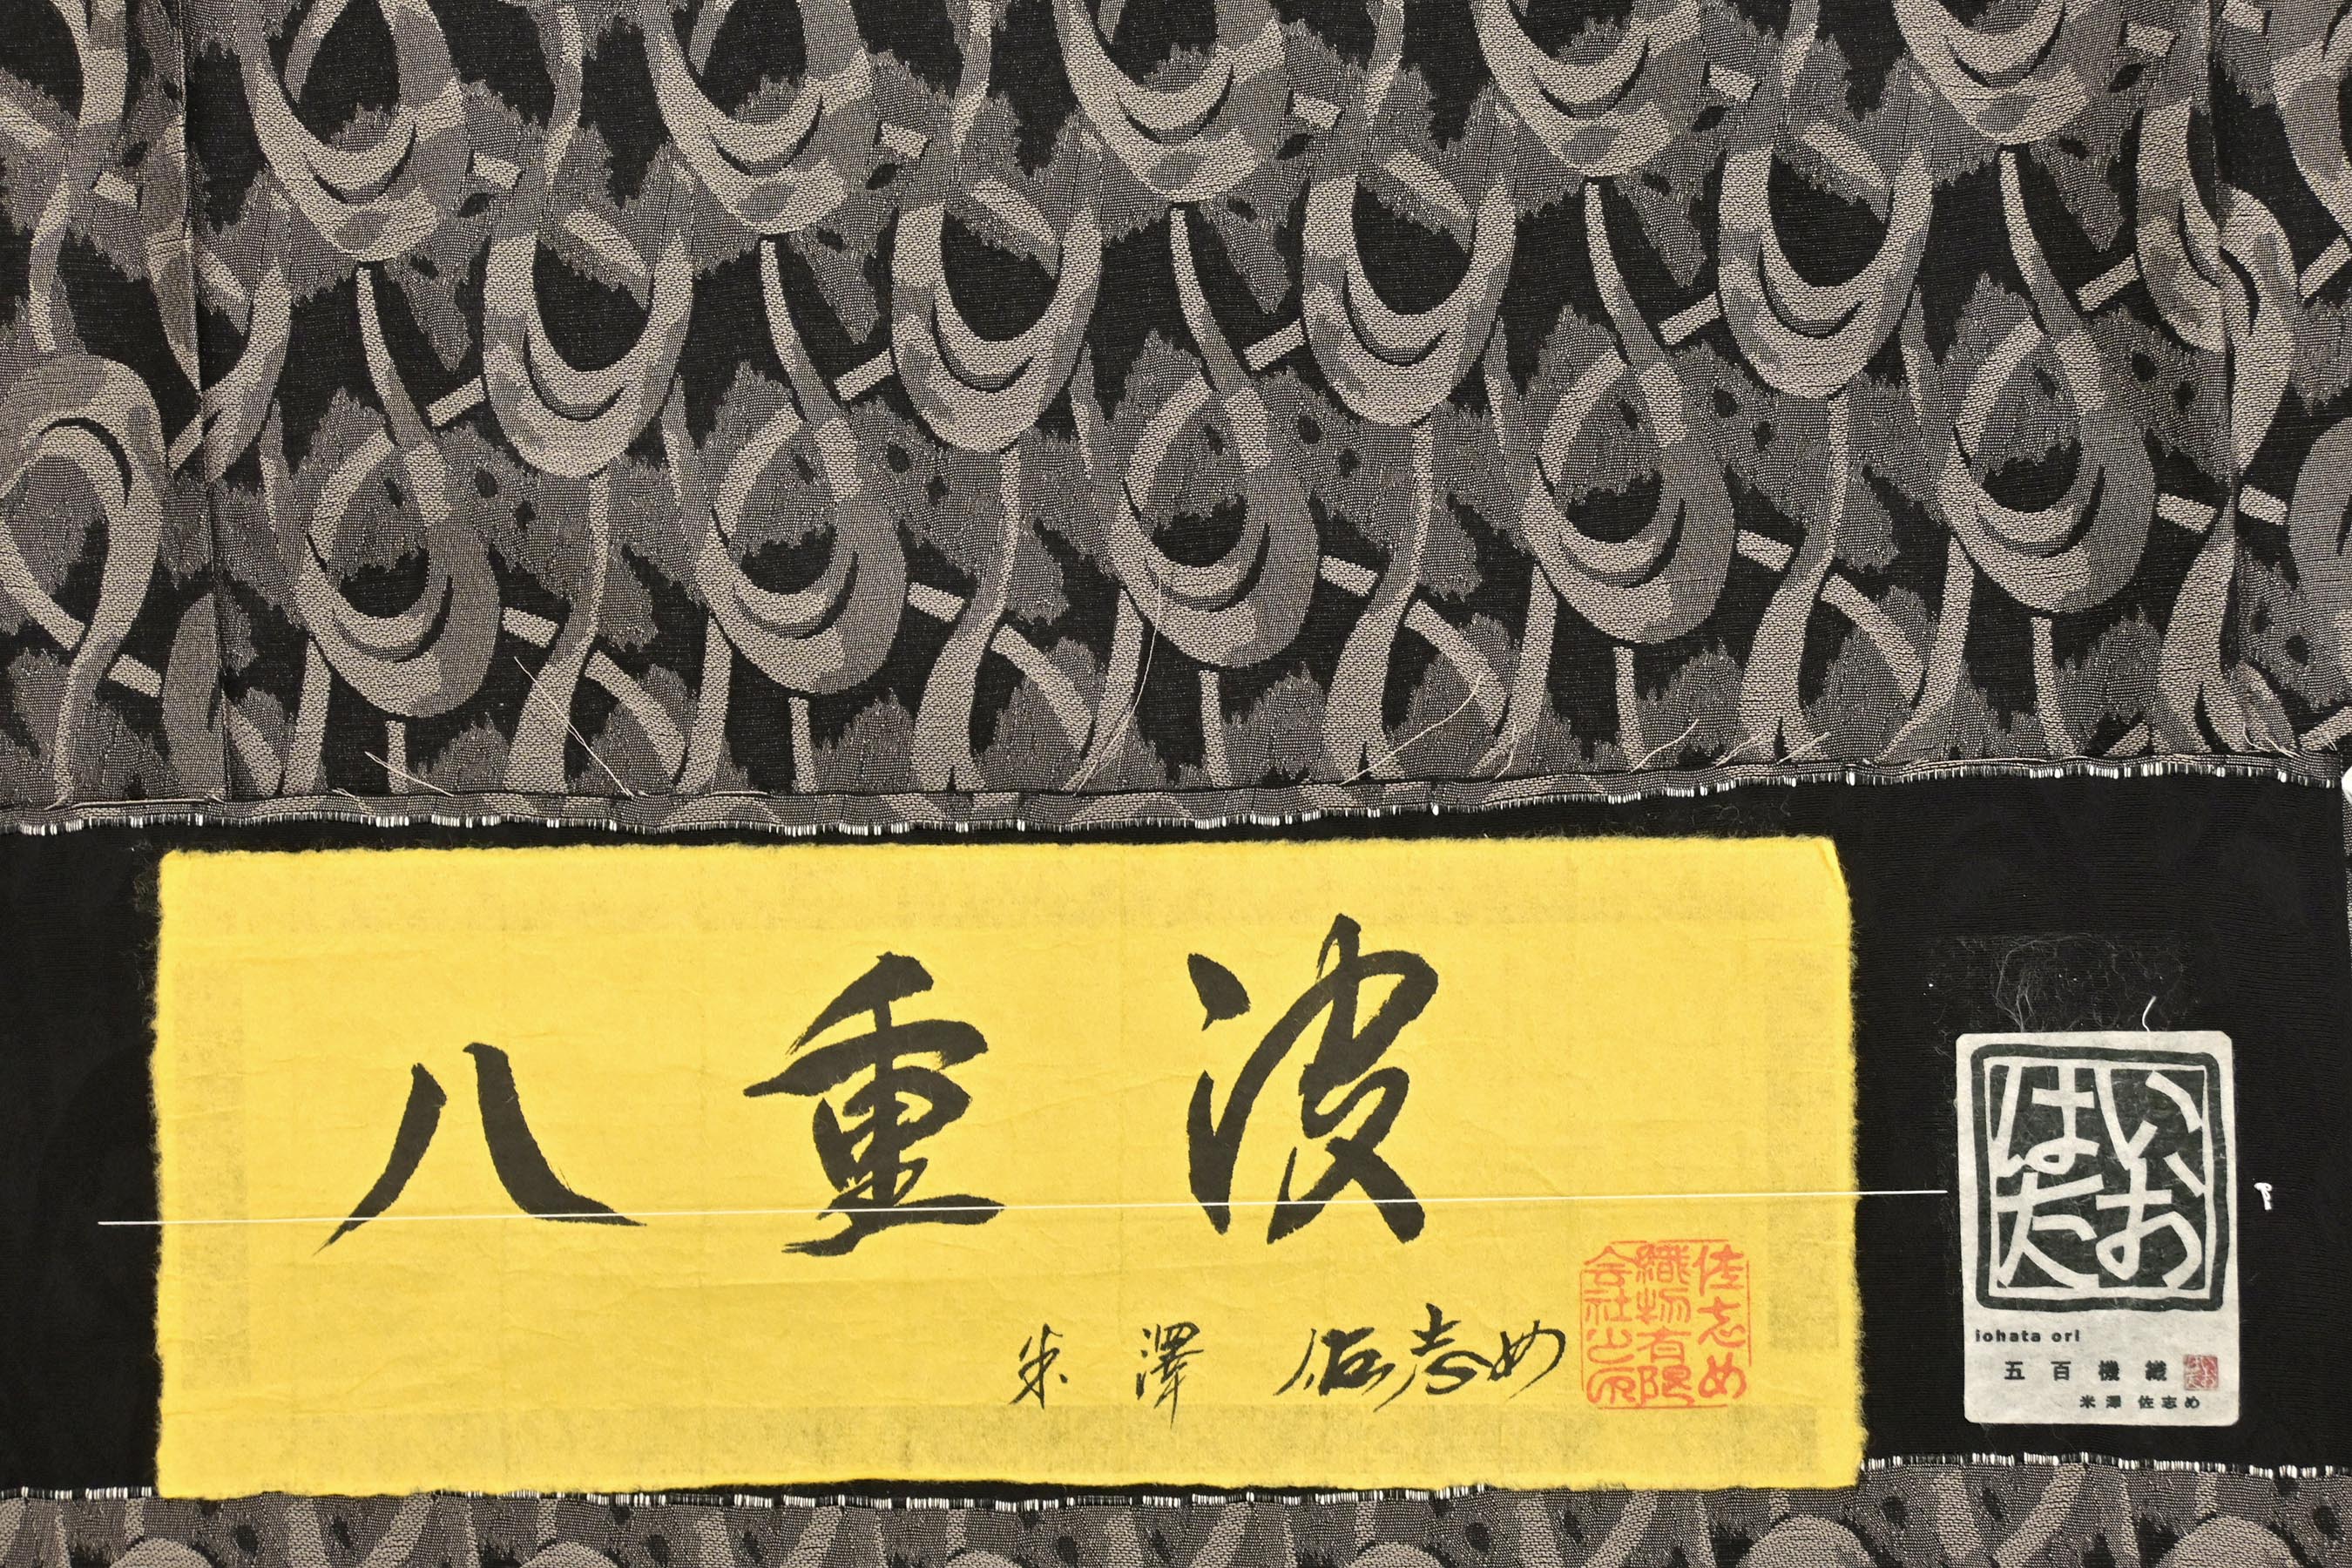 八重波
米澤 佐志め
佐志め
織物有限
会社之印
いお
はた
iohata ori
五百機織
米澤 佐志め